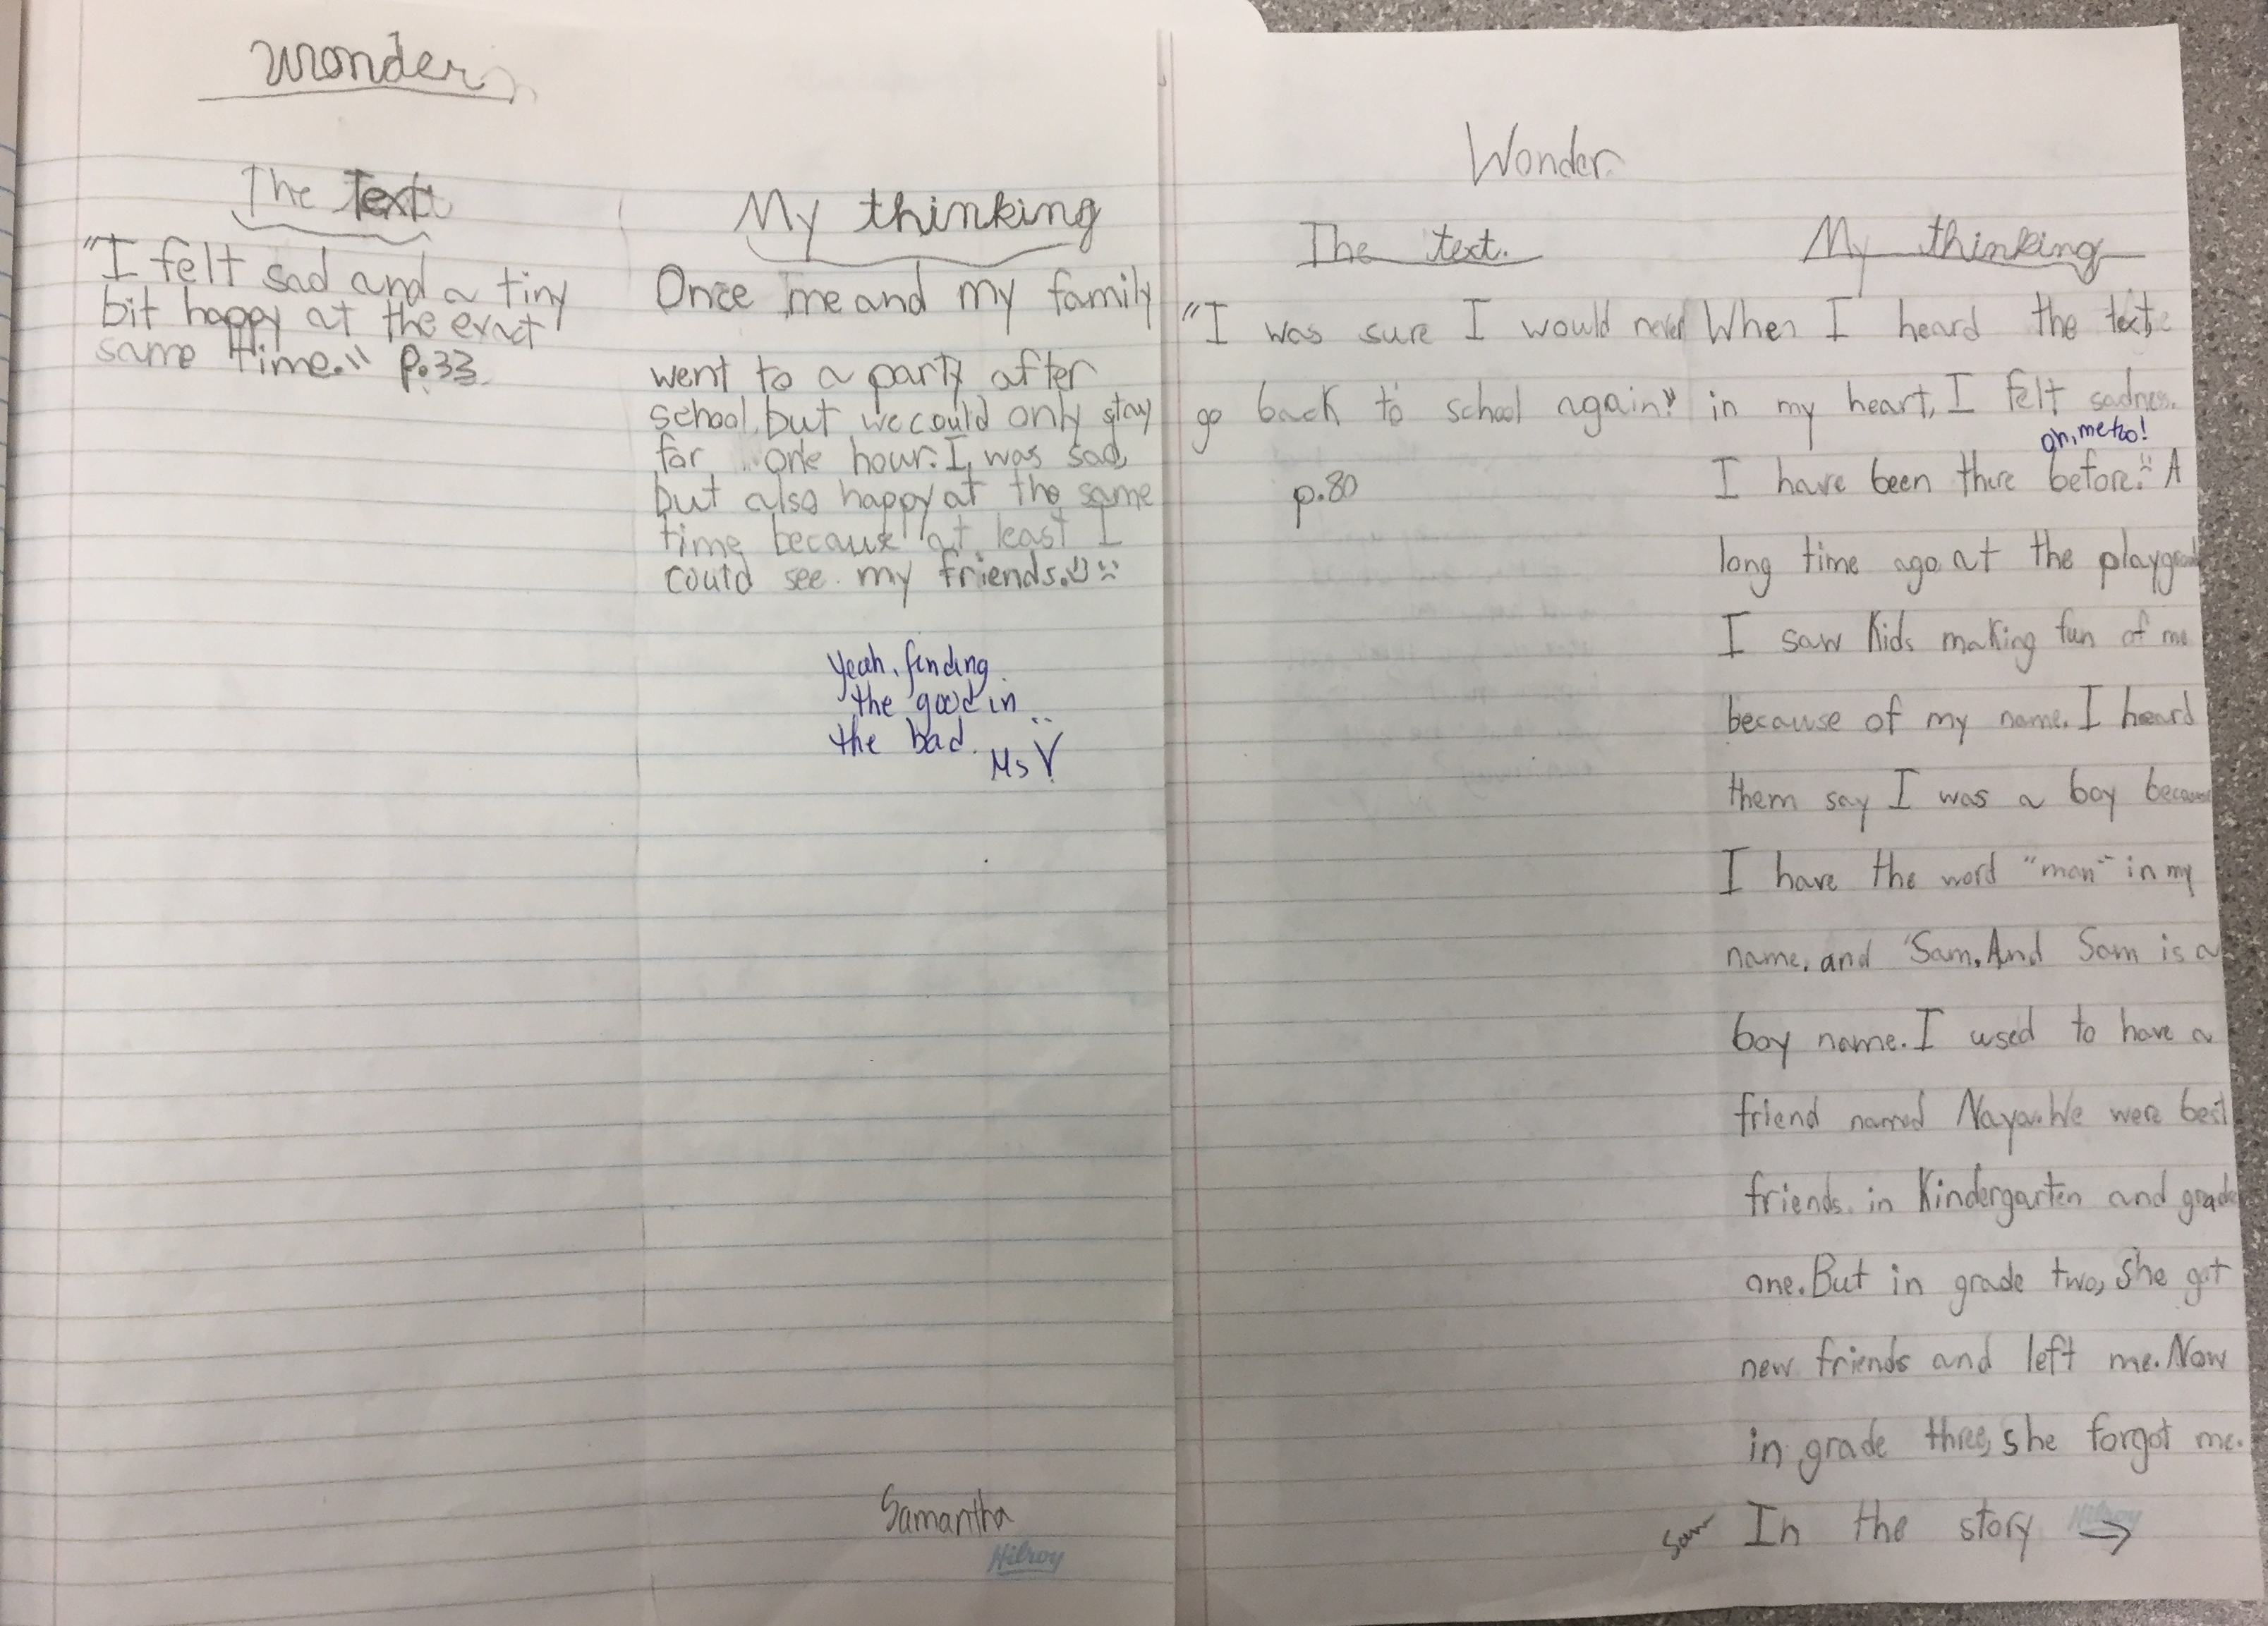 Wonder
The Text
"I felt sad and a tiny
bit happy at the exact
same time." p.33
My thinking
Once me and my family
went to a party after
school, but we could only stay
for one hour. I was sad,
but also happy at the same
time because at least I
could see my friends.
Yeah, finding
the good in
the bad.
Ms V
Samantha
Hilroy
Wonder
The text.
"I was sure I would never
go back to school again."
p.80
My thinking
When I heard the text,
in my heart, I felt sadness.
oh, me too!
I have been there before. A
long time ago at the playground
I saw kids making fun of me
because of my name. I heard
them say I was a boy because
I have the word "man" in my
name, and Sam. And Sam is a
boy name. I used to have a
friend named Naya. We were best
friends in Kindergarten and grade
one. But in grade two, she got
new friends and left me. Now
in grade three, she forgot me.
Sam In the story →
Hilroy